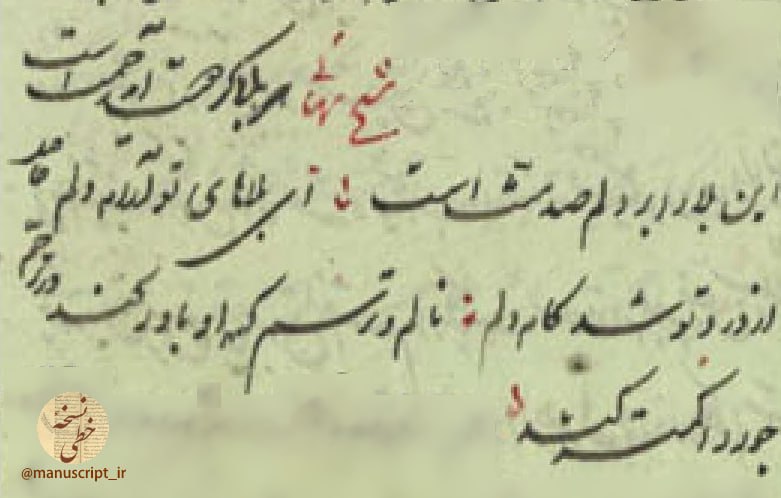 شیخ بهائی هر بلا کز دوست آید رحمت است
این بلا را بر دلم صد منت است ای بلاهای تو آرام دلم حاصل
از درد تو شد کام دلم نالم و ترسم که او باور کند وز ترحم
جور را کمتر کند
نسخه خطی
@manuscript_ir